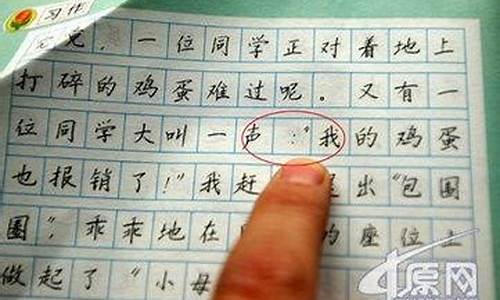 习作
见，一位同学正对着地上
打碎的鸡蛋难过呢。又有一
位同学大叫一声："我的鸡蛋
也报销了！"我赶 出"包围
圈"，乖乖地在 的座位上
做起了"小母
中原网